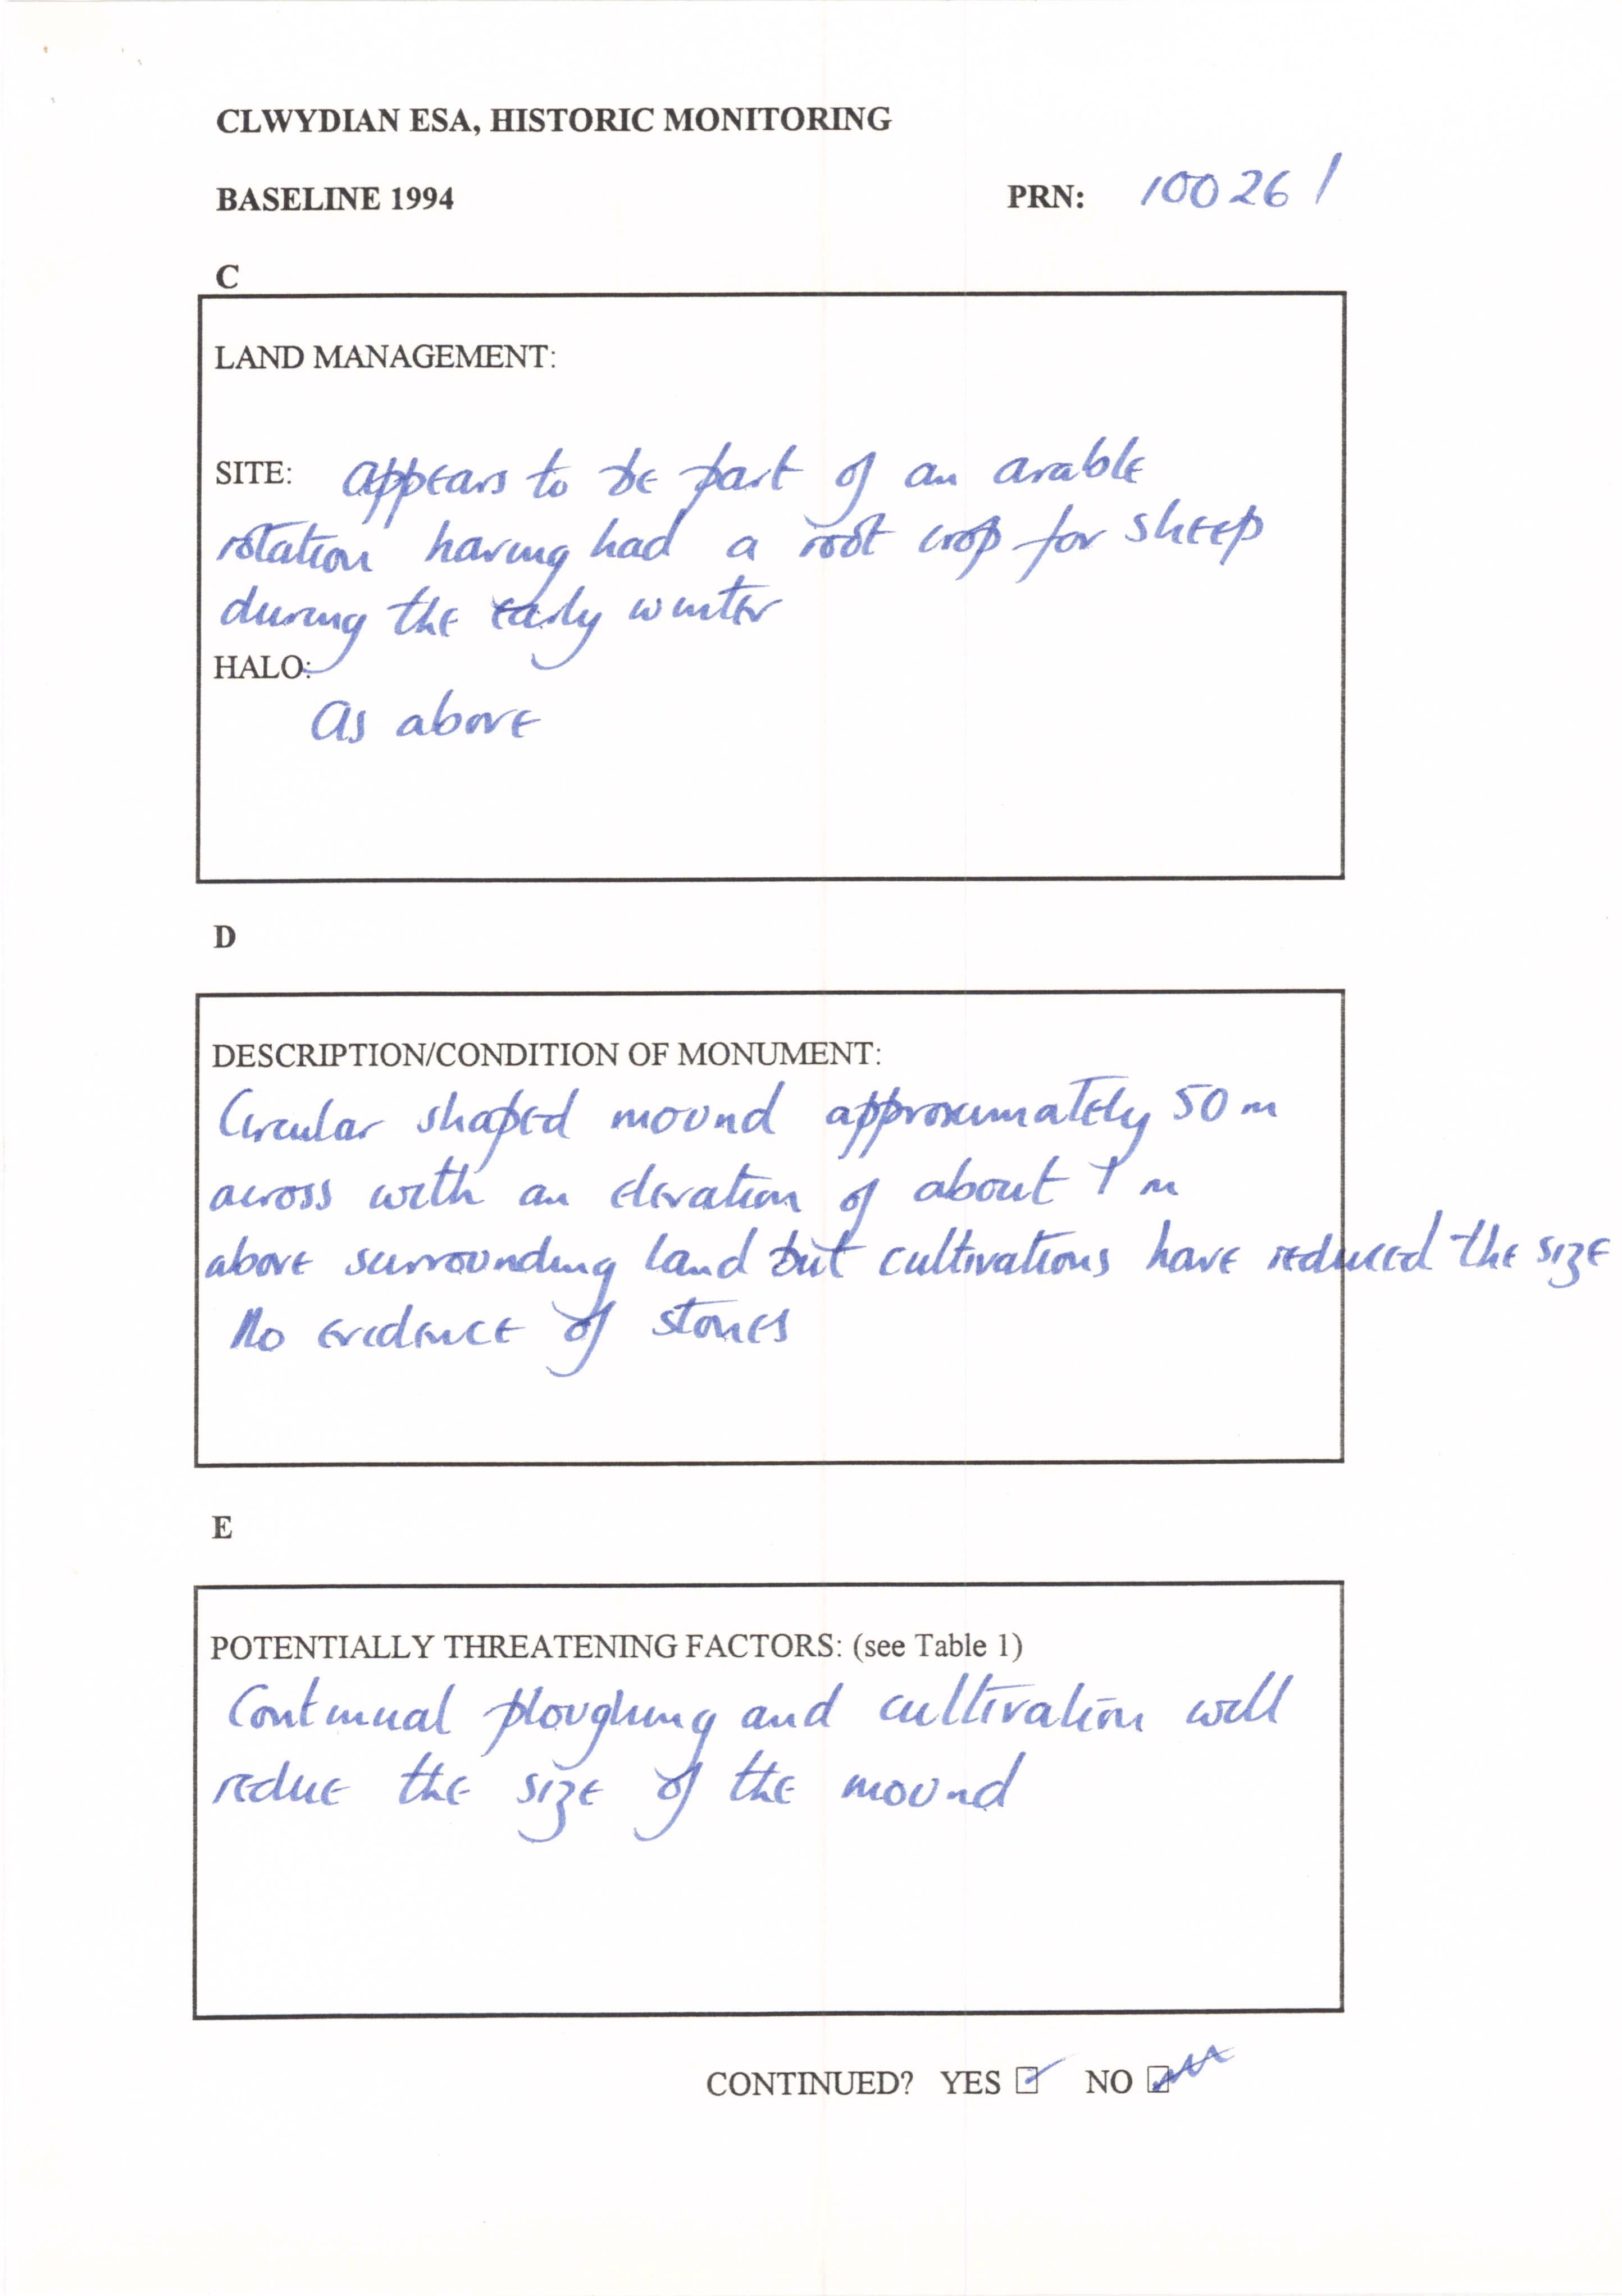 CLWYDIAN ESA, HISTORIC MONITORING
BASELINE 1994 PRN: 100261
C
LAND MANAGEMENT:
SITE: appears to be part of an arable
rotation having had a root crop for sheep
during the early winter
HALO:
As above
D
DESCRIPTION/CONDITION OF MONUMENT:
Circular shaped mound approximately 50 m
across with an elevation of about 1 m
above surrounding land but cultivations have reduced the size
No evidence of stones
E
POTENTIALLY THREATENING FACTORS: (see Table 1)
Continual ploughing and cultivation will
reduce the size of the mound
CONTINUED? YES NO